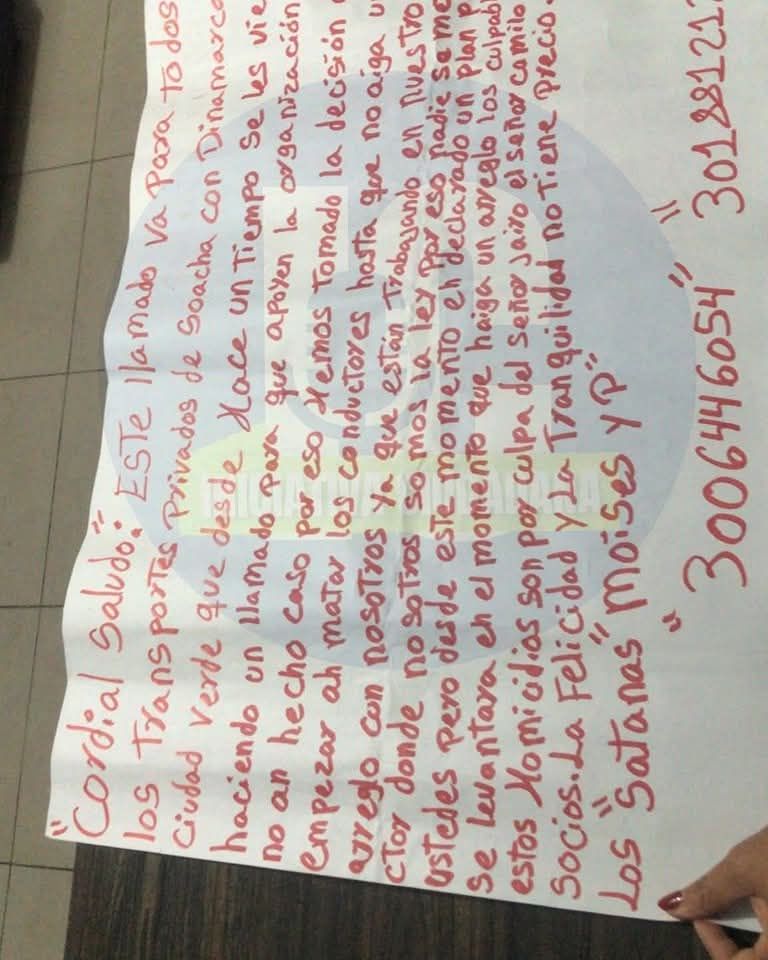 "Cordial Saludo:" ESTE llamado va Para Todos
los Transportes Privados de Soacha con Dinamarca
Ciudad Verde que desde Hace un Tiempo se les vie
haciendo un llamado Para que apoyen la organización
no an hecho caso Por eso Hemos Tomado la decisión
empezar ah matar los conductores hasta que no aiga u
arreglo con nosotros Ya que están Trabajando en nuestro
ctor donde nosotros somos la ley Por eso nadie se me
ustedes Pero desde este momento en declarado un Plan P
se levantara en el momento que haiga un arreglo los culpabl
estos Homicidios son Por culpa del señor Jairo el señor camilo
Socios. La Felicidad y La Tranquilidad no Tiene Precio.
Los "Satanas" "Moises y P"
"3006446054" " 301881212
INICIATIVA